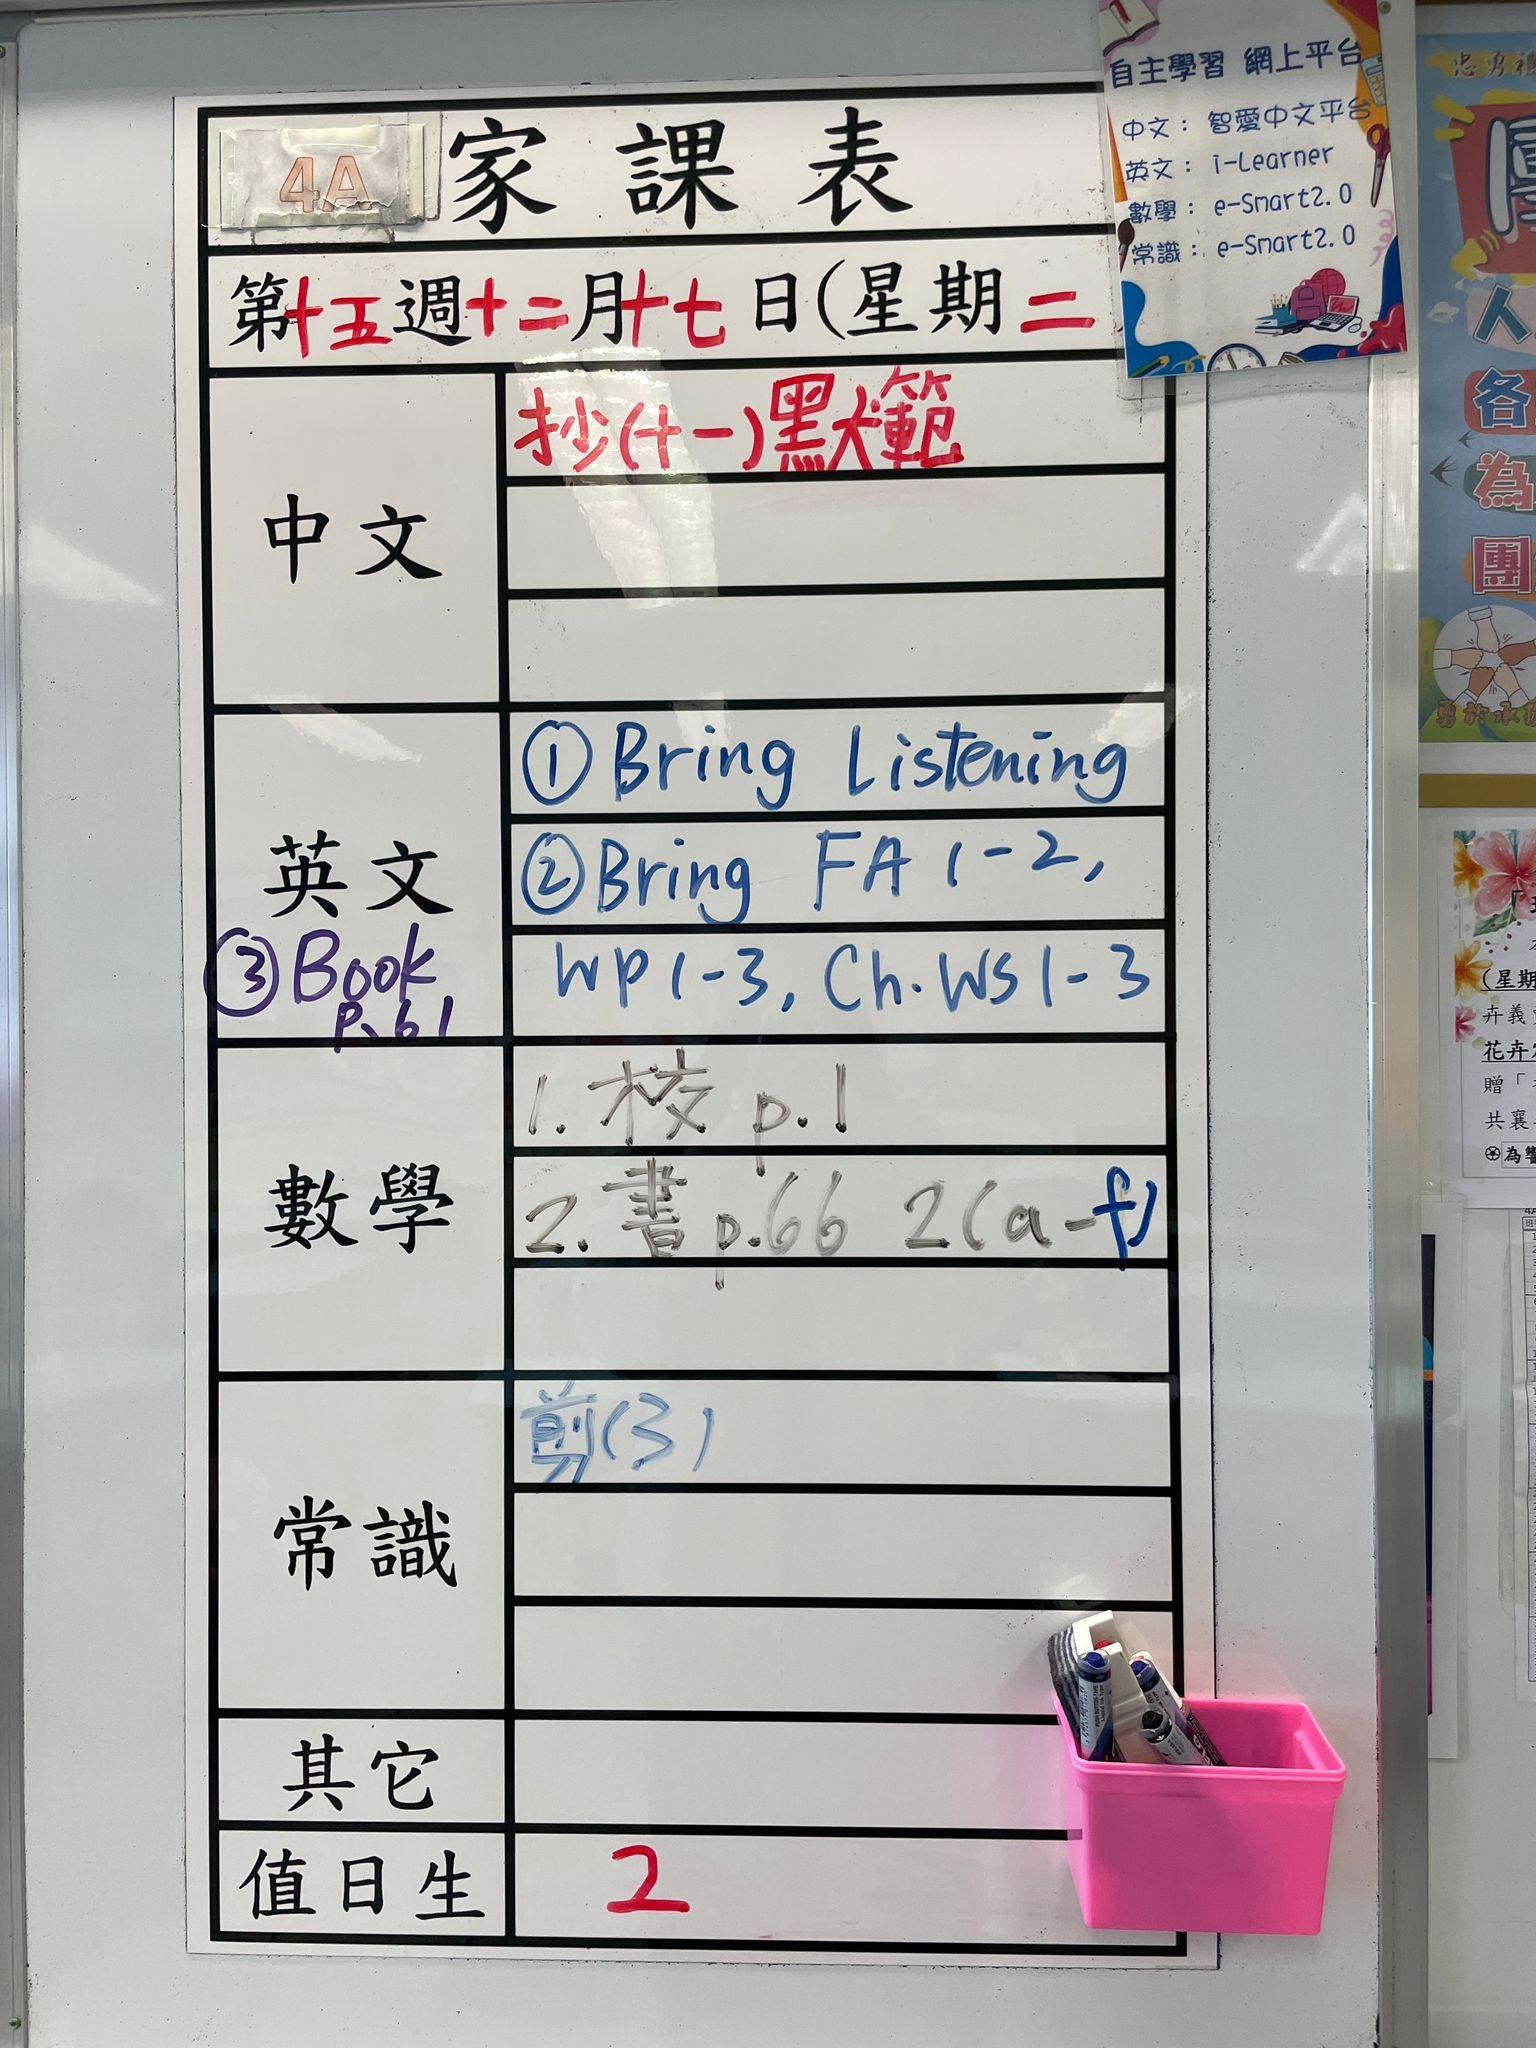 自主學習 網上平台
中文：智愛中文平台
英文：i-Learner
數學：e-Smart2.0
常識：e-Smart2.0
4A 家課表
第十五週十二月十七日(星期二
中文
抄(十一)黑犬範
英文
①Bring Listening
②Bring FA 1-2,
WP1-3, Ch.WS1-3
③Book
P.61
數學
1. 校 p.1
2. 書 p.66 2(a-f)
常識
剪(3)
其它
值日生
2
忠勇
人
各
為
團
(星期
卉義
贈「
共襄